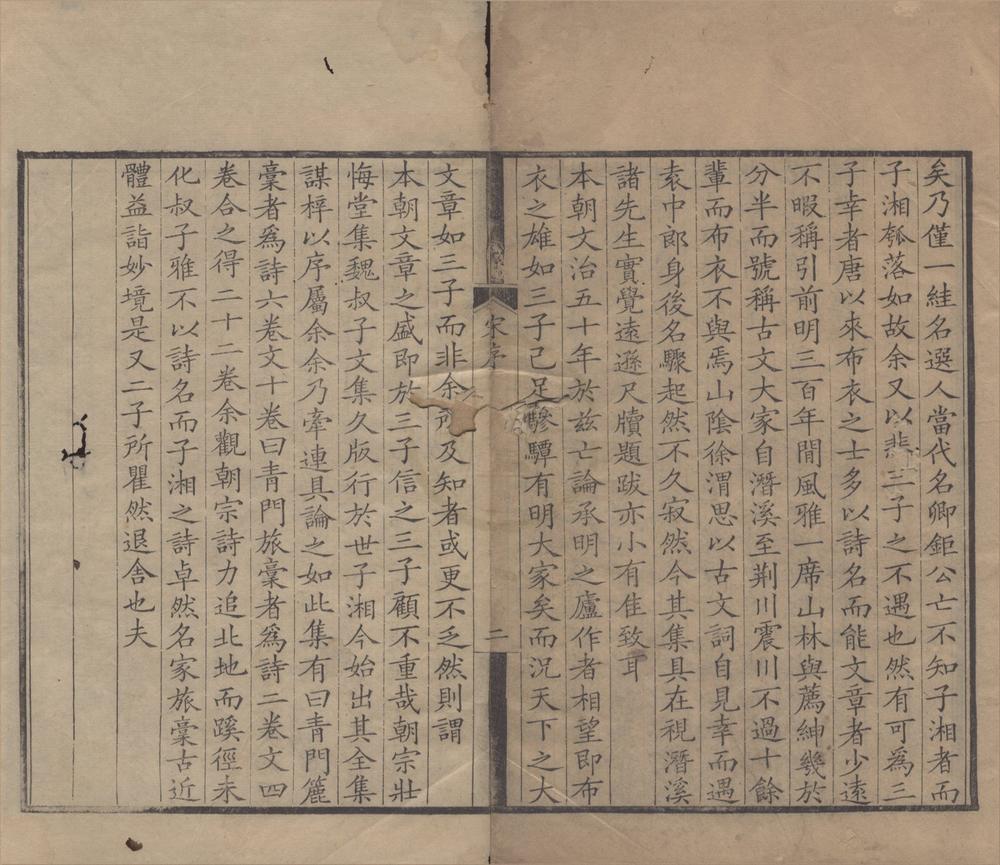 矣乃僅一絓名選人當代名卿鉅公亡不知子湘者而
子湘瓠落如故余又以悲三子之不遇也然有可爲三
子幸者唐以來布衣之士多以詩名而能文章者少遠
不暇稱引前明三百年間風雅一席山林與薦紳幾於
分半而號稱古文大家自潛溪至荆川震川不過十餘
輩而布衣不與焉山陰徐渭思以古文詞自見幸而遇
袁中郎身後名驟起然不久寂然今其集具在視潛溪
諸先生實覺遠遜尺牘題跋亦小有佳致耳
本朝文治五十年於兹亡論承明之廬作者相望即布
衣之雄如三子已足驂驔有明大家矣而況天下之大
宋序
二
文章如三子而非余所及知者或更不乏然則謂
本朝文章之盛即於三子信之三子顧不重哉朝宗壯
悔堂集魏叔子文集久版行於世子湘今始出其全集
謀梓以序屬余余乃牽連具論之如此集有曰青門簏
稾者爲詩六卷文十卷曰青門旅稾者爲詩二卷文四
卷合之得二十二卷余觀朝宗詩力追北地而蹊徑未
化叔子雅不以詩名而子湘之詩卓然名家旅稾古近
體益詣妙境是又二子所瞿然退舍也夫